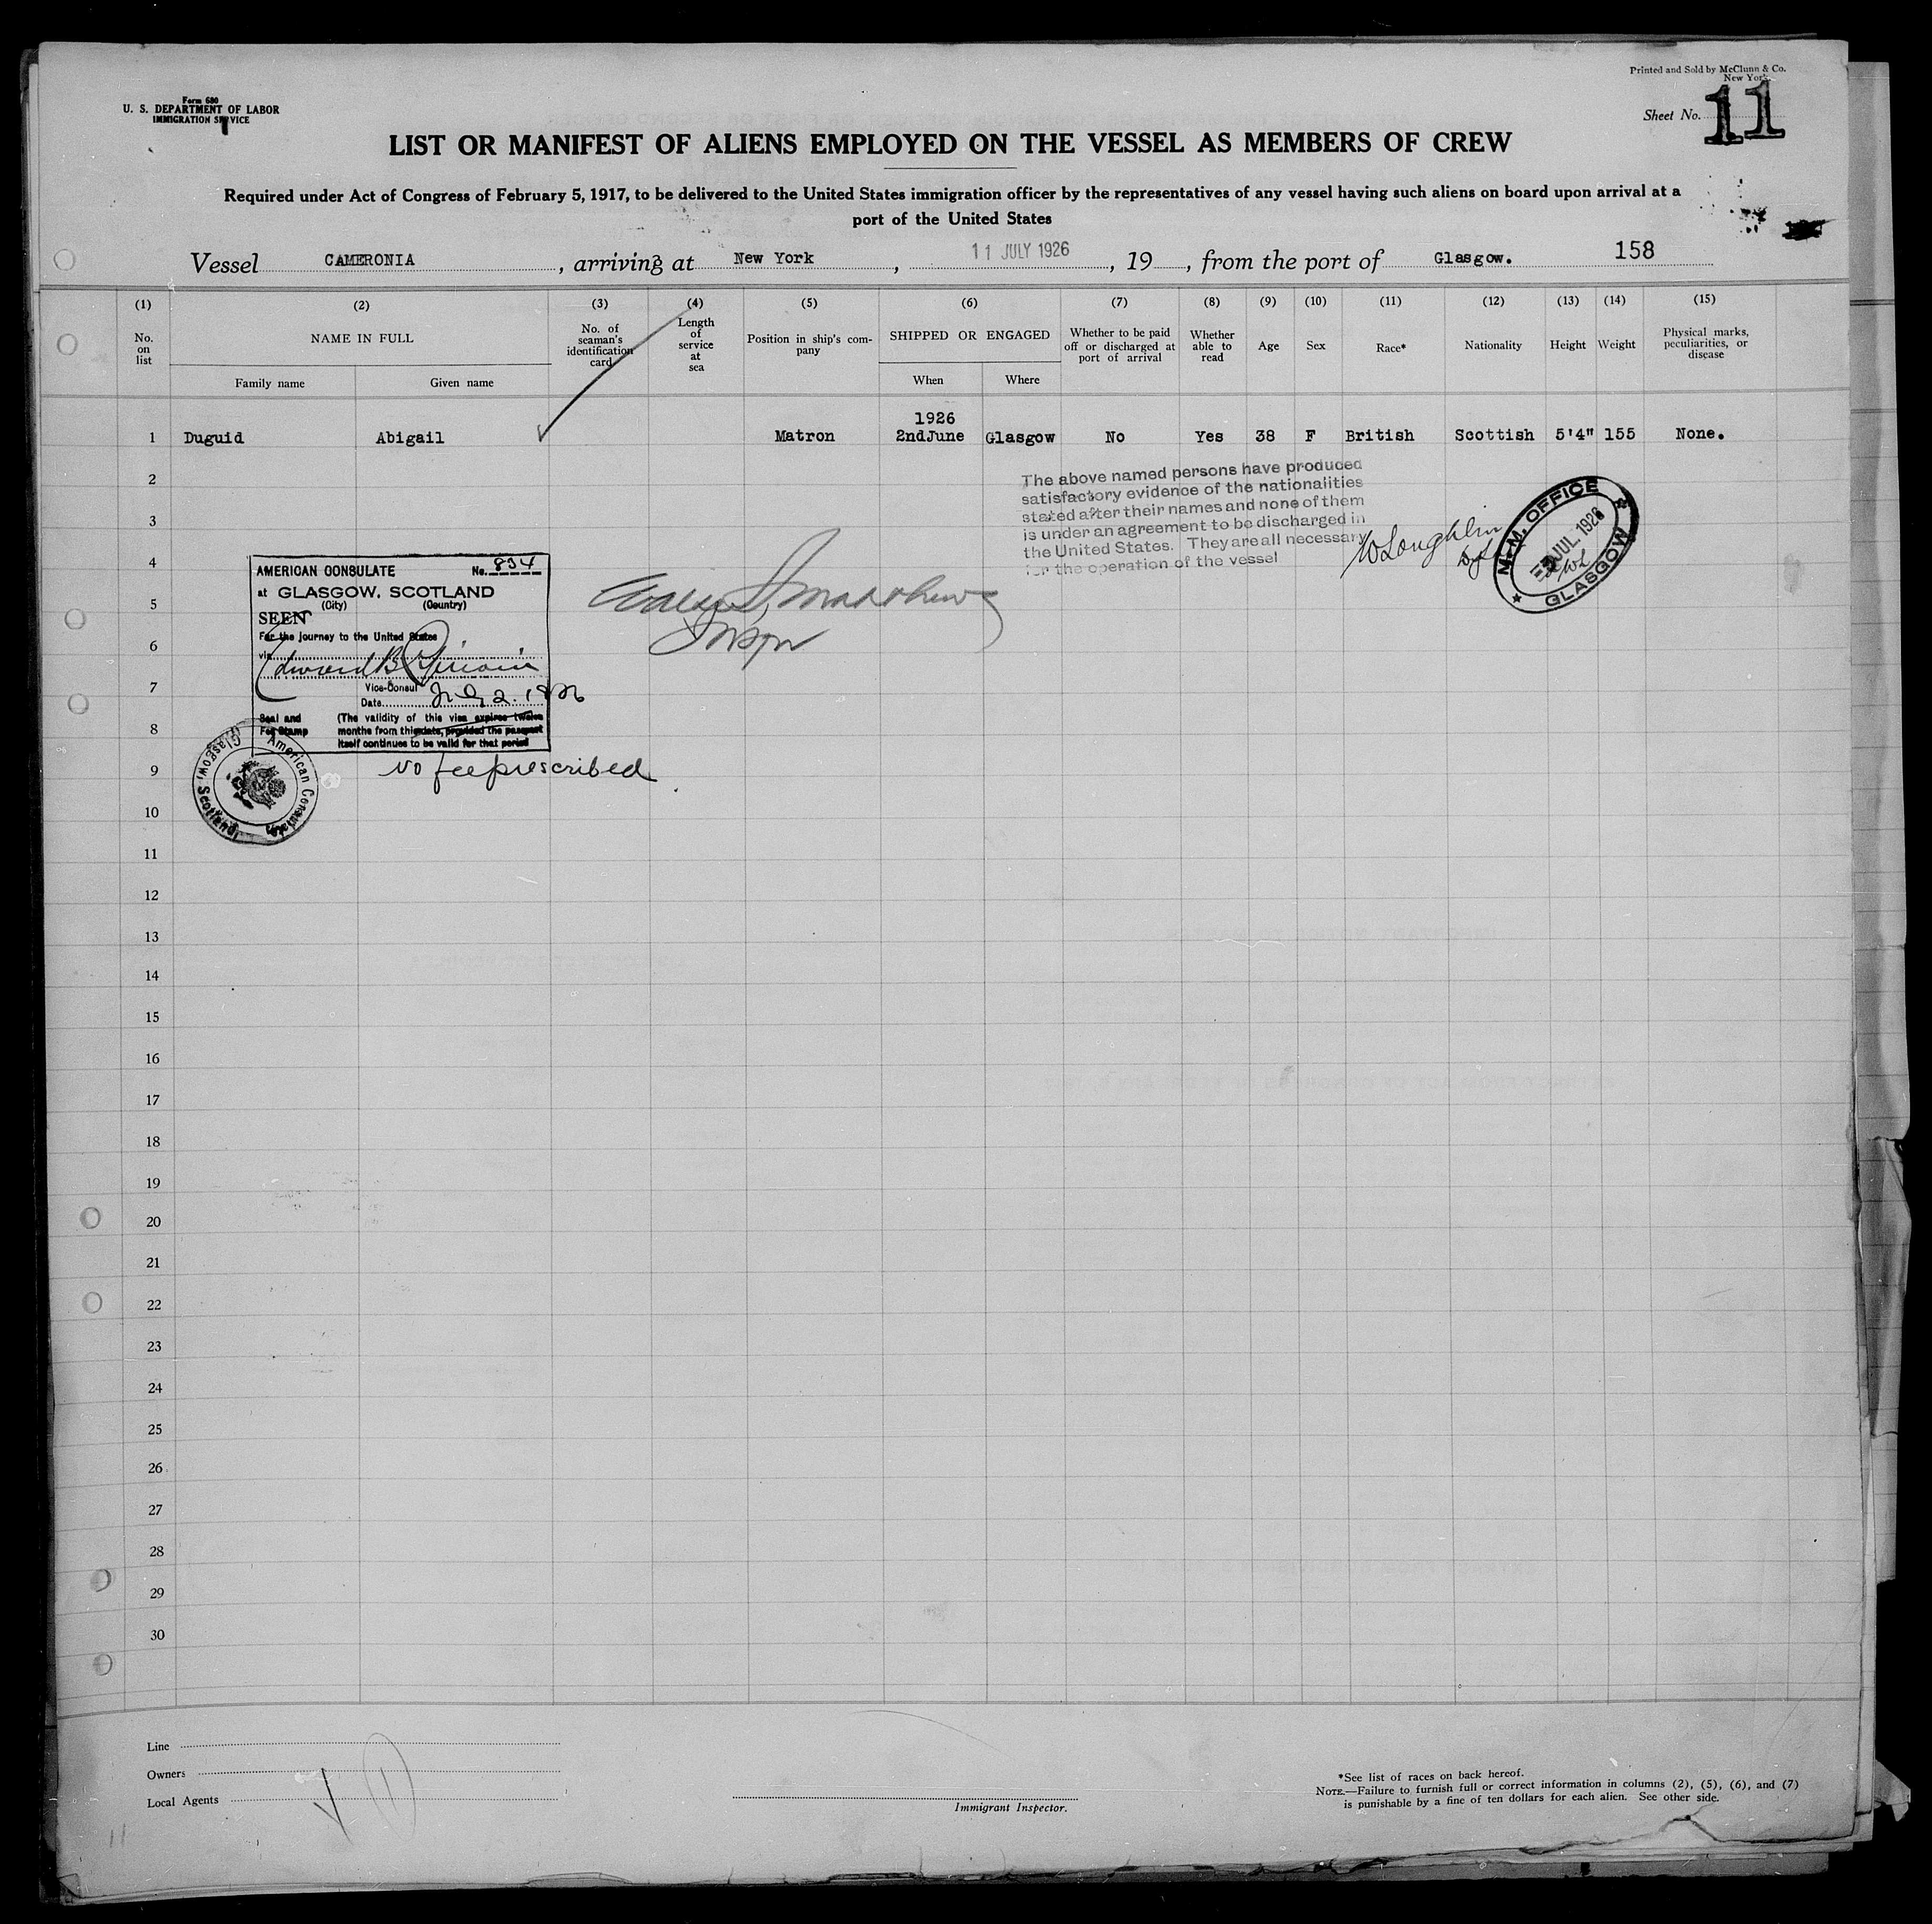 Form 680
U. S. DEPARTMENT OF LABOR
IMMIGRATION SERVICE
Printed and Sold by McClunn & Co.
New York
Sheet No. 11
LIST OR MANIFEST OF ALIENS EMPLOYED ON THE VESSEL AS MEMBERS OF CREW
Required under Act of Congress of February 5, 1917, to be delivered to the United States immigration officer by the representatives of any vessel having such aliens on board upon arrival at a
port of the United States
Vessel CAMERONIA, arriving at New York, 11 JULY 1926, 19, from the port of Glasgow. 158
(1) (2) (3) (4) (5) (6) (7) (8) (9) (10) (11) (12) (13) (14) (15)
No. on list
NAME IN FULL
Family name Given name
No. of seaman's identification card
Length of service at sea
Position in ship's company
SHIPPED OR ENGAGED
When Where
Whether to be paid off or discharged at port of arrival
Whether able to read
Age
Sex
Race*
Nationality
Height
Weight
Physical marks, peculiarities, or disease
1926
1 Duguid Abigail Matron 2ndJune Glasgow No Yes 38 F British Scottish 5'4" 155 None.
The above named persons have produced
satisfactory evidence of the nationalities
stated after their names and none of them
is under an agreement to be discharged in
the United States. They are all necessary
for the operation of the vessel
M.M. OFFICE
3 JUL 1926
GLASGOW
AMERICAN CONSULATE No. 834
at GLASGOW, SCOTLAND
(City) (Country)
SEEN
For the journey to the United States
via
Edward B.
Vice-Consul
Date July 2. 1926
Seal and
Fee Stamp
(The validity of this visa expires twelve
months from this date, provided the passport
itself continues to be valid for that period
No fee prescribed
American Consulate
Glasgow, Scotland
2
3
4
5
6
7
8
9
10
11
12
13
14
15
16
17
18
19
20
21
22
23
24
25
26
27
28
29
30
Line
Owners
Local Agents
11
Immigrant Inspector.
*See list of races on back hereof.
NOTE.—Failure to furnish full or correct information in columns (2), (5), (6), and (7)
is punishable by a fine of ten dollars for each alien. See other side.